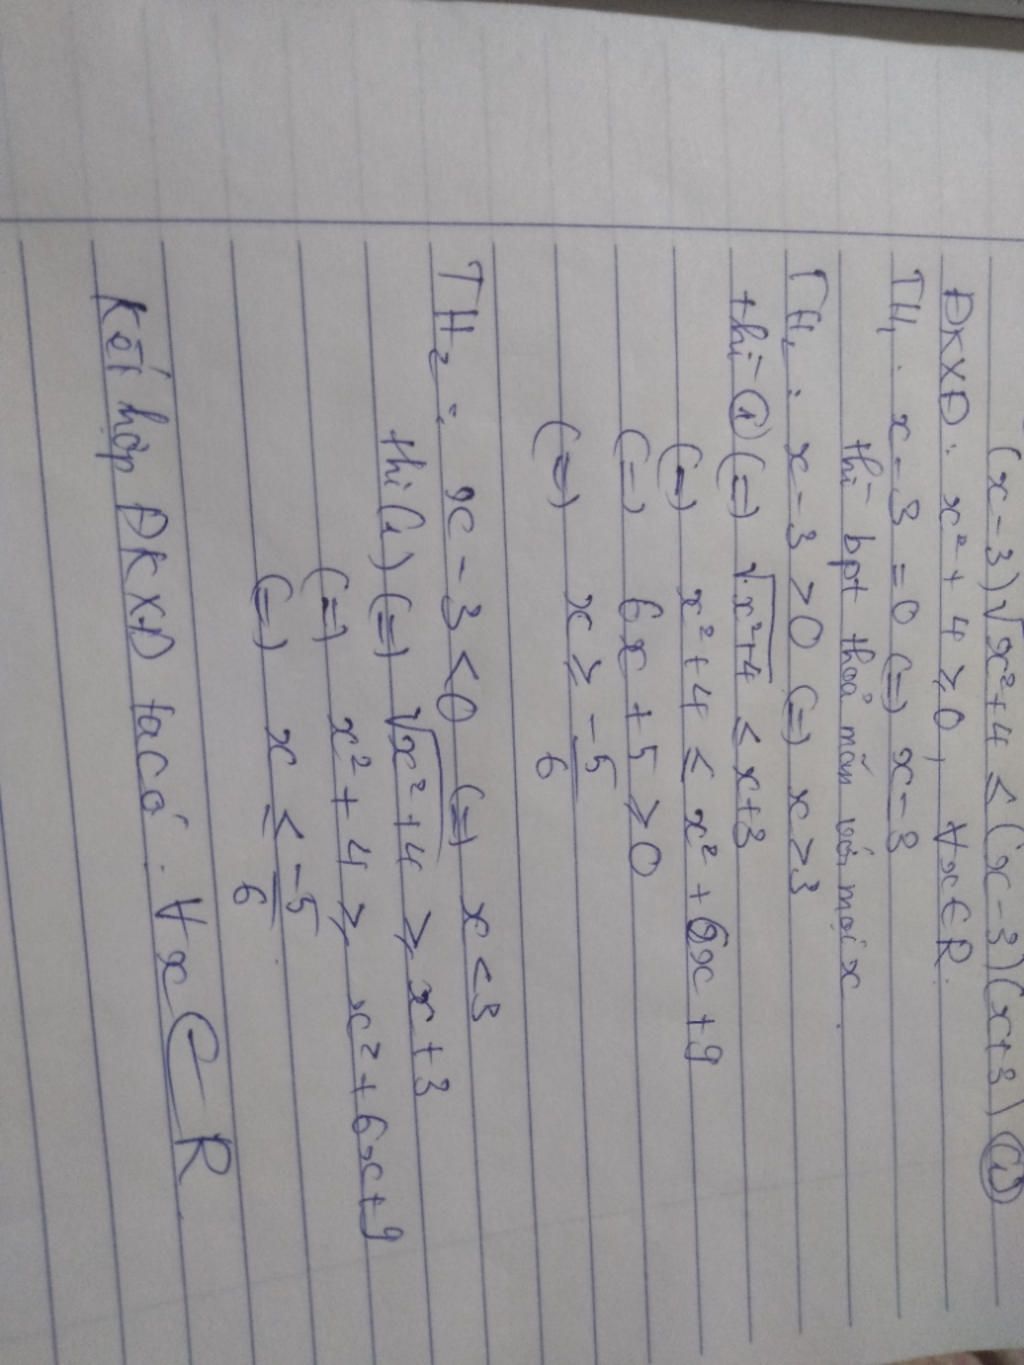 (x-3)√x²+4 ≤ (x-3)(x+3) (1)
ĐKXĐ: x²+4 ≥ 0, ∀x∈R.
TH₁. x-3=0 (=) x=3
thì bpt thoả mãn với mọi x.
TH₂: x-3>0 (=) x>3
thì (1) (=) √x²+4 ≤ x+3
(=) x²+4 ≤ x²+6x+9
(=) 6x+5 ≥ 0
(=) x ≥ -5/6
TH₂: x-3<0 (=) x<3
thì (1) (=) √x²+4 ≥ x+3
(=) x²+4 ≥ x²+6x+9
(=) x ≤ -5/6
Kết hợp ĐKXĐ ta có. ∀x∈R.